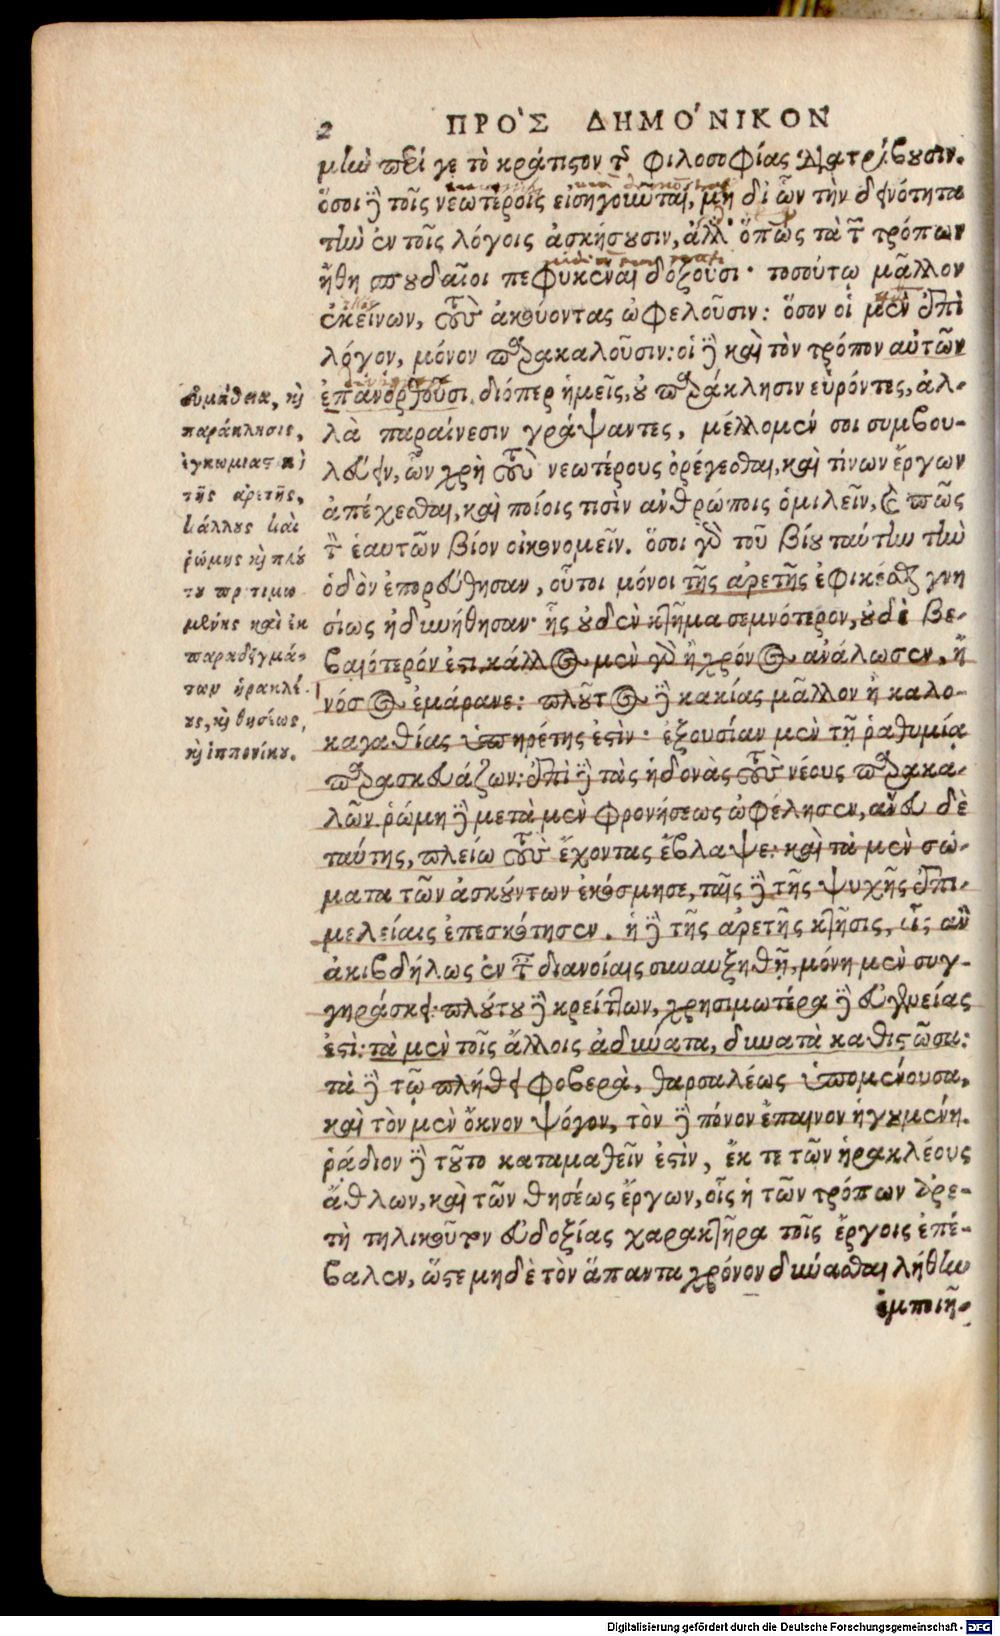 2 ΠΡΟ῀Σ ΔΗΜΟ´ΝΙΚΟΝ
μὴν περί γε τὸ κράτιστον τῆς φιλοσοφίας διατρίβουσιν.
ὅσοι δὲ τοῖς νεωτέροις εἰσηγοῦνται, μὴ δι ὧν τὴν δεινότητα
τὴν ἐν τοῖς λόγοις ἀσκήσουσιν, ἀλλ' ὅπως τὰ τῶν τρόπων
ἤθη σπουδαῖοι πεφυκέναι δόξουσι· τοσούτῳ μᾶλλον
ἐκείνων, τοὺς ἀκούοντας ὠφελοῦσιν: ὅσον οἱ μὲν ἐπὶ
λόγον, μόνον παρακαλοῦσιν: οἱ δὲ καὶ τὸν τρόπον αὐτῶν
ἐπανορθοῦσι. διόπερ ἡμεῖς, οὐ παράκλησιν εὑρόντες, ἀλ-
λὰ παραίνεσιν γράψαντες, μέλλομέν σοι συμβου-
λεύειν, ὧν χρὴ τοὺς νεωτέρους ὀρέγεσθαι, καὶ τίνων ἔργων
ἀπέχεσθαι, καὶ ποίοις τισὶν ἀνθρώποις ὁμιλεῖν, καὶ πῶς
τὸν ἑαυτῶν βίον οἰκονομεῖν. ὅσοι γὰρ τοῦ βίου ταύτην τὴν
ὁδὸν ἐπορεύθησαν, οὗτοι μόνοι τῆς ἀρετῆς ἐφικέσθαι γνη
σίως ἠδυνήθησαν· ἧς οὐδὲν κτῆμα σεμνότερον, οὐδὲ βε-
βαιότερόν ἐστι. κάλλος μὲν γὰρ ἢ χρόνος ἀνάλωσεν, ἢ
νόσος ἐμάρανε: πλοῦτος δὲ κακίας μᾶλλον ἢ καλο-
καγαθίας ὑπηρέτης ἐστὶν· ἐξουσίαν μὲν τῇ ῥαθυμίᾳ
παρασκευάζων: ἐπὶ δὲ τὰς ἡδονὰς τοὺς νέους παρακα-
λῶν. ῥώμη δὲ μετὰ μὲν φρονήσεως ὠφέλησεν, ἄνευ δὲ
ταύτης, πλείω τοὺς ἔχοντας ἔβλαψε: καὶ τὰ μὲν σώ-
ματα τῶν ἀσκούντων ἐκόσμησε, ταῖς δὲ τῆς ψυχῆς ἐπι-
μελείαις ἐπεσκότησεν. ἡ δὲ τῆς ἀρετῆς κτῆσις, οἷς ἂν
ἀκιβδήλως ἐν ταῖς διανοίαις συναυξηθῇ, μόνη μὲν συγ-
γηράσκει: πλούτου δὲ κρείττων, χρησιμωτέρα δὲ εὐγενείας
ἐστὶ: τὰ μὲν τοῖς ἄλλοις ἀδύνατα, δυνατὰ καθιστῶσα:
τὰ δὲ τῷ πλήθει φοβερὰ, θαρσαλέως ὑπομένουσα,
καὶ τὸν μὲν ὄκνον ψόγον, τὸν δὲ πόνον ἔπαινον ἡγουμένη.
ῥάδιον δὲ τοῦτο καταμαθεῖν ἐστὶν, ἔκ τε τῶν ἡρακλέους
ἄθλων, καὶ τῶν θησέως ἔργων, οἷς ἡ τῶν τρόπων ἀρε-
τὴ τηλικοῦτον εὐδοξίας χαρακτῆρα τοῖς ἔργοις ἐπέ-
βαλεν, ὥστε μηδὲ τὸν ἅπαντα χρόνον δύνασθαι λήθην
ἐμποιῆ-
εὐμάθεια, καὶ
παράκλησις,
ἐγκωμιαστικὶ
τῆς ἀρετῆς,
κάλλους καὶ
ῥώμης καὶ πλού
του προτιμω
μένης καὶ ἐκ
παραδειγμά-
των ἡρακλέ-
ους, καὶ θησέως,
καὶ ἱππονίκου.
Digitalisierung gefördert durch die Deutsche Forschungsgemeinschaft - DFG